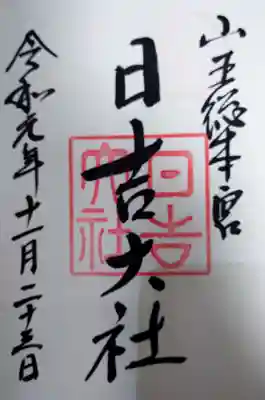 山王總本宮
日吉大社
日吉大社
令和元年十一月二十三日